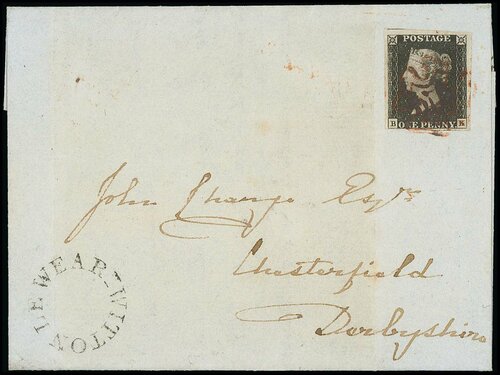 POSTAGE
B ONE PENNY K
John Sharpe Esqre
Chesterfield
Derbyshire
WITTON LE WEAR